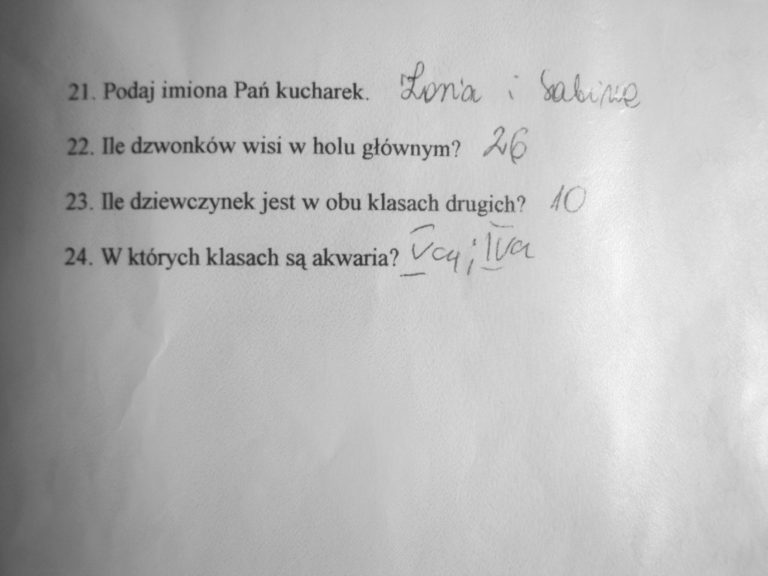 21. Podaj imiona Pań kucharek. i Sabina
22. Ile dzwonków wisi w holu głównym? 26
23. Ile dziewczynek jest w obu klasach drugich? 10
24. W których klasach są akwaria? Va; IVa